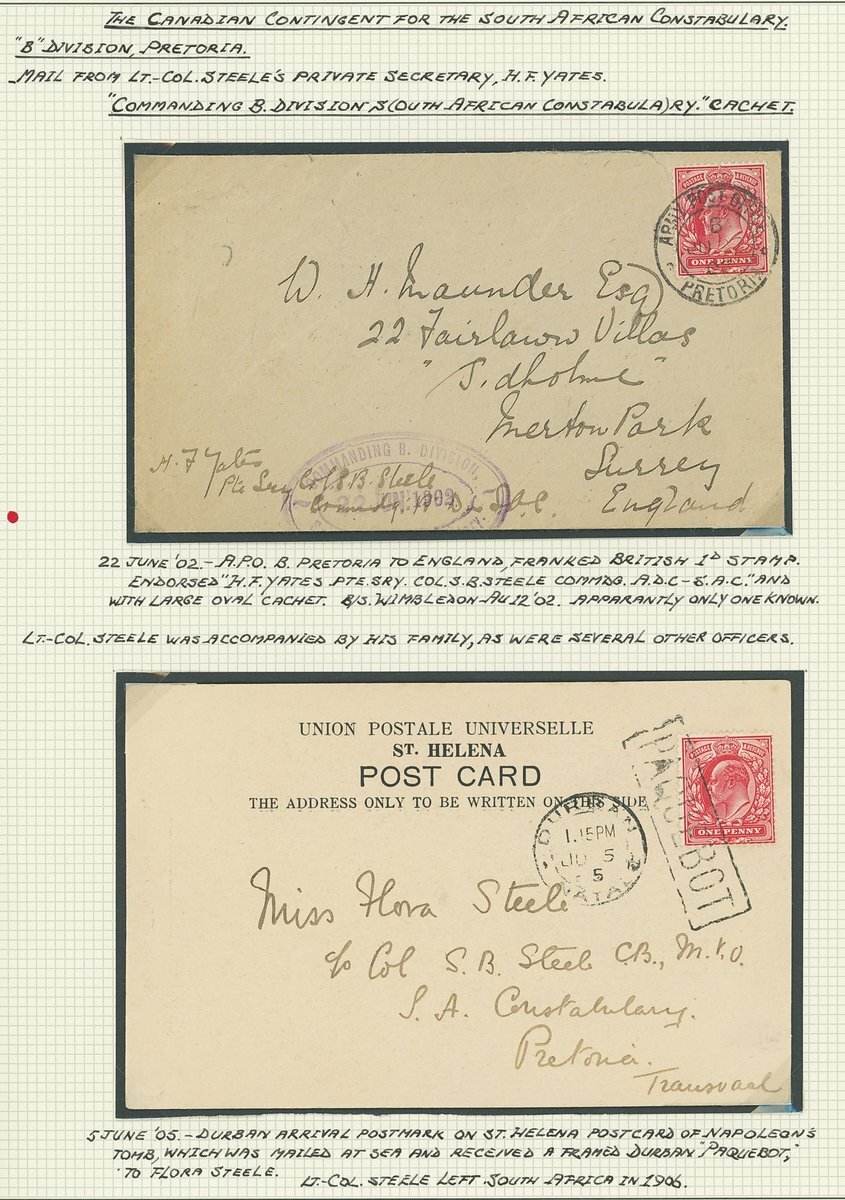 THE CANADIAN CONTINGENT FOR THE SOUTH AFRICAN CONSTABULARY.
"B" DIVISION, PRETORIA.
MAIL FROM LT.-COL. STEELE'S PRIVATE SECRETARY, H.F. YATES.
"COMMANDING B. DIVISION S(OUTH AFRICAN CONSTABULA)RY." CACHET.
POSTAGE & REVENUE
ONE PENNY
ARMY POST OFFICE
B
PRETORIA
W. H. Maunder Esq
22 Fairlawn Villas
Merton Park
Surrey
England
H. F Yates
Pte Sry Col. S B. Steele
COMMANDING B. DIVISION,
22 JUN. 1902
22 JUNE '02.- A.P.O. B. PRETORIA TO ENGLAND, FRANKED BRITISH 1D STAMP.
ENDORSED "H.F. YATES PTE. SRY. COL. S.B. STEELE COMMDG. A.D.C - S.A.C." AND
WITH LARGE OVAL CACHET. B/S. WIMBLEDON - AU 12 '02. APPARANTLY ONLY ONE KNOWN.
LT.-COL. STEELE WAS ACCOMPANIED BY HIS FAMILY, AS WERE SEVERAL OTHER OFFICERS.
UNION POSTALE UNIVERSELLE
ST. HELENA
POST CARD
THE ADDRESS ONLY TO BE WRITTEN ON THIS SIDE
POSTAGE & REVENUE
ONE PENNY
PAQUEBOT
DURBAN
1.15PM
JU 5
5
NATAL
Miss Flora Steele
c/o Col S. B. Steele C.B., M.V.O.
S. A. Constabulary.
Pretoria.
Transvaal
5 JUNE '05.- DURBAN ARRIVAL POSTMARK ON ST. HELENA POSTCARD OF NAPOLEON'S
TOMB, WHICH WAS MAILED AT SEA AND RECEIVED A FRAMED DURBAN "PAQUEBOT,"
TO FLORA STEELE.
LT.-COL. STEELE LEFT SOUTH AFRICA IN 1906.